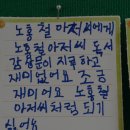 노홍철 아저씨에게
노홍철 아저씨 독서
감상문이 지루하고
재미 없어요 조금
재미어요 노홍철
아저씨처럼 되기
싫어요